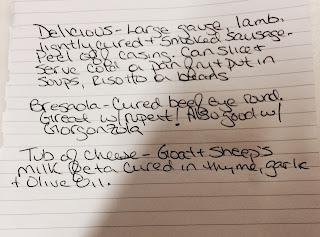 Delicious - Large gauge lamb.
lightly cured + smoked sausage.
Peel off casing. Can slice +
serve cold or pan fry + put in
soups, Risotto or beans
Bresaola - Cured beef eye round.
Great w/ rupert! Also good w/
Giorgonzola
Tub of Cheese - Goat + Sheep's
milk feta cured in thyme, garlic
+ Olive Oil.